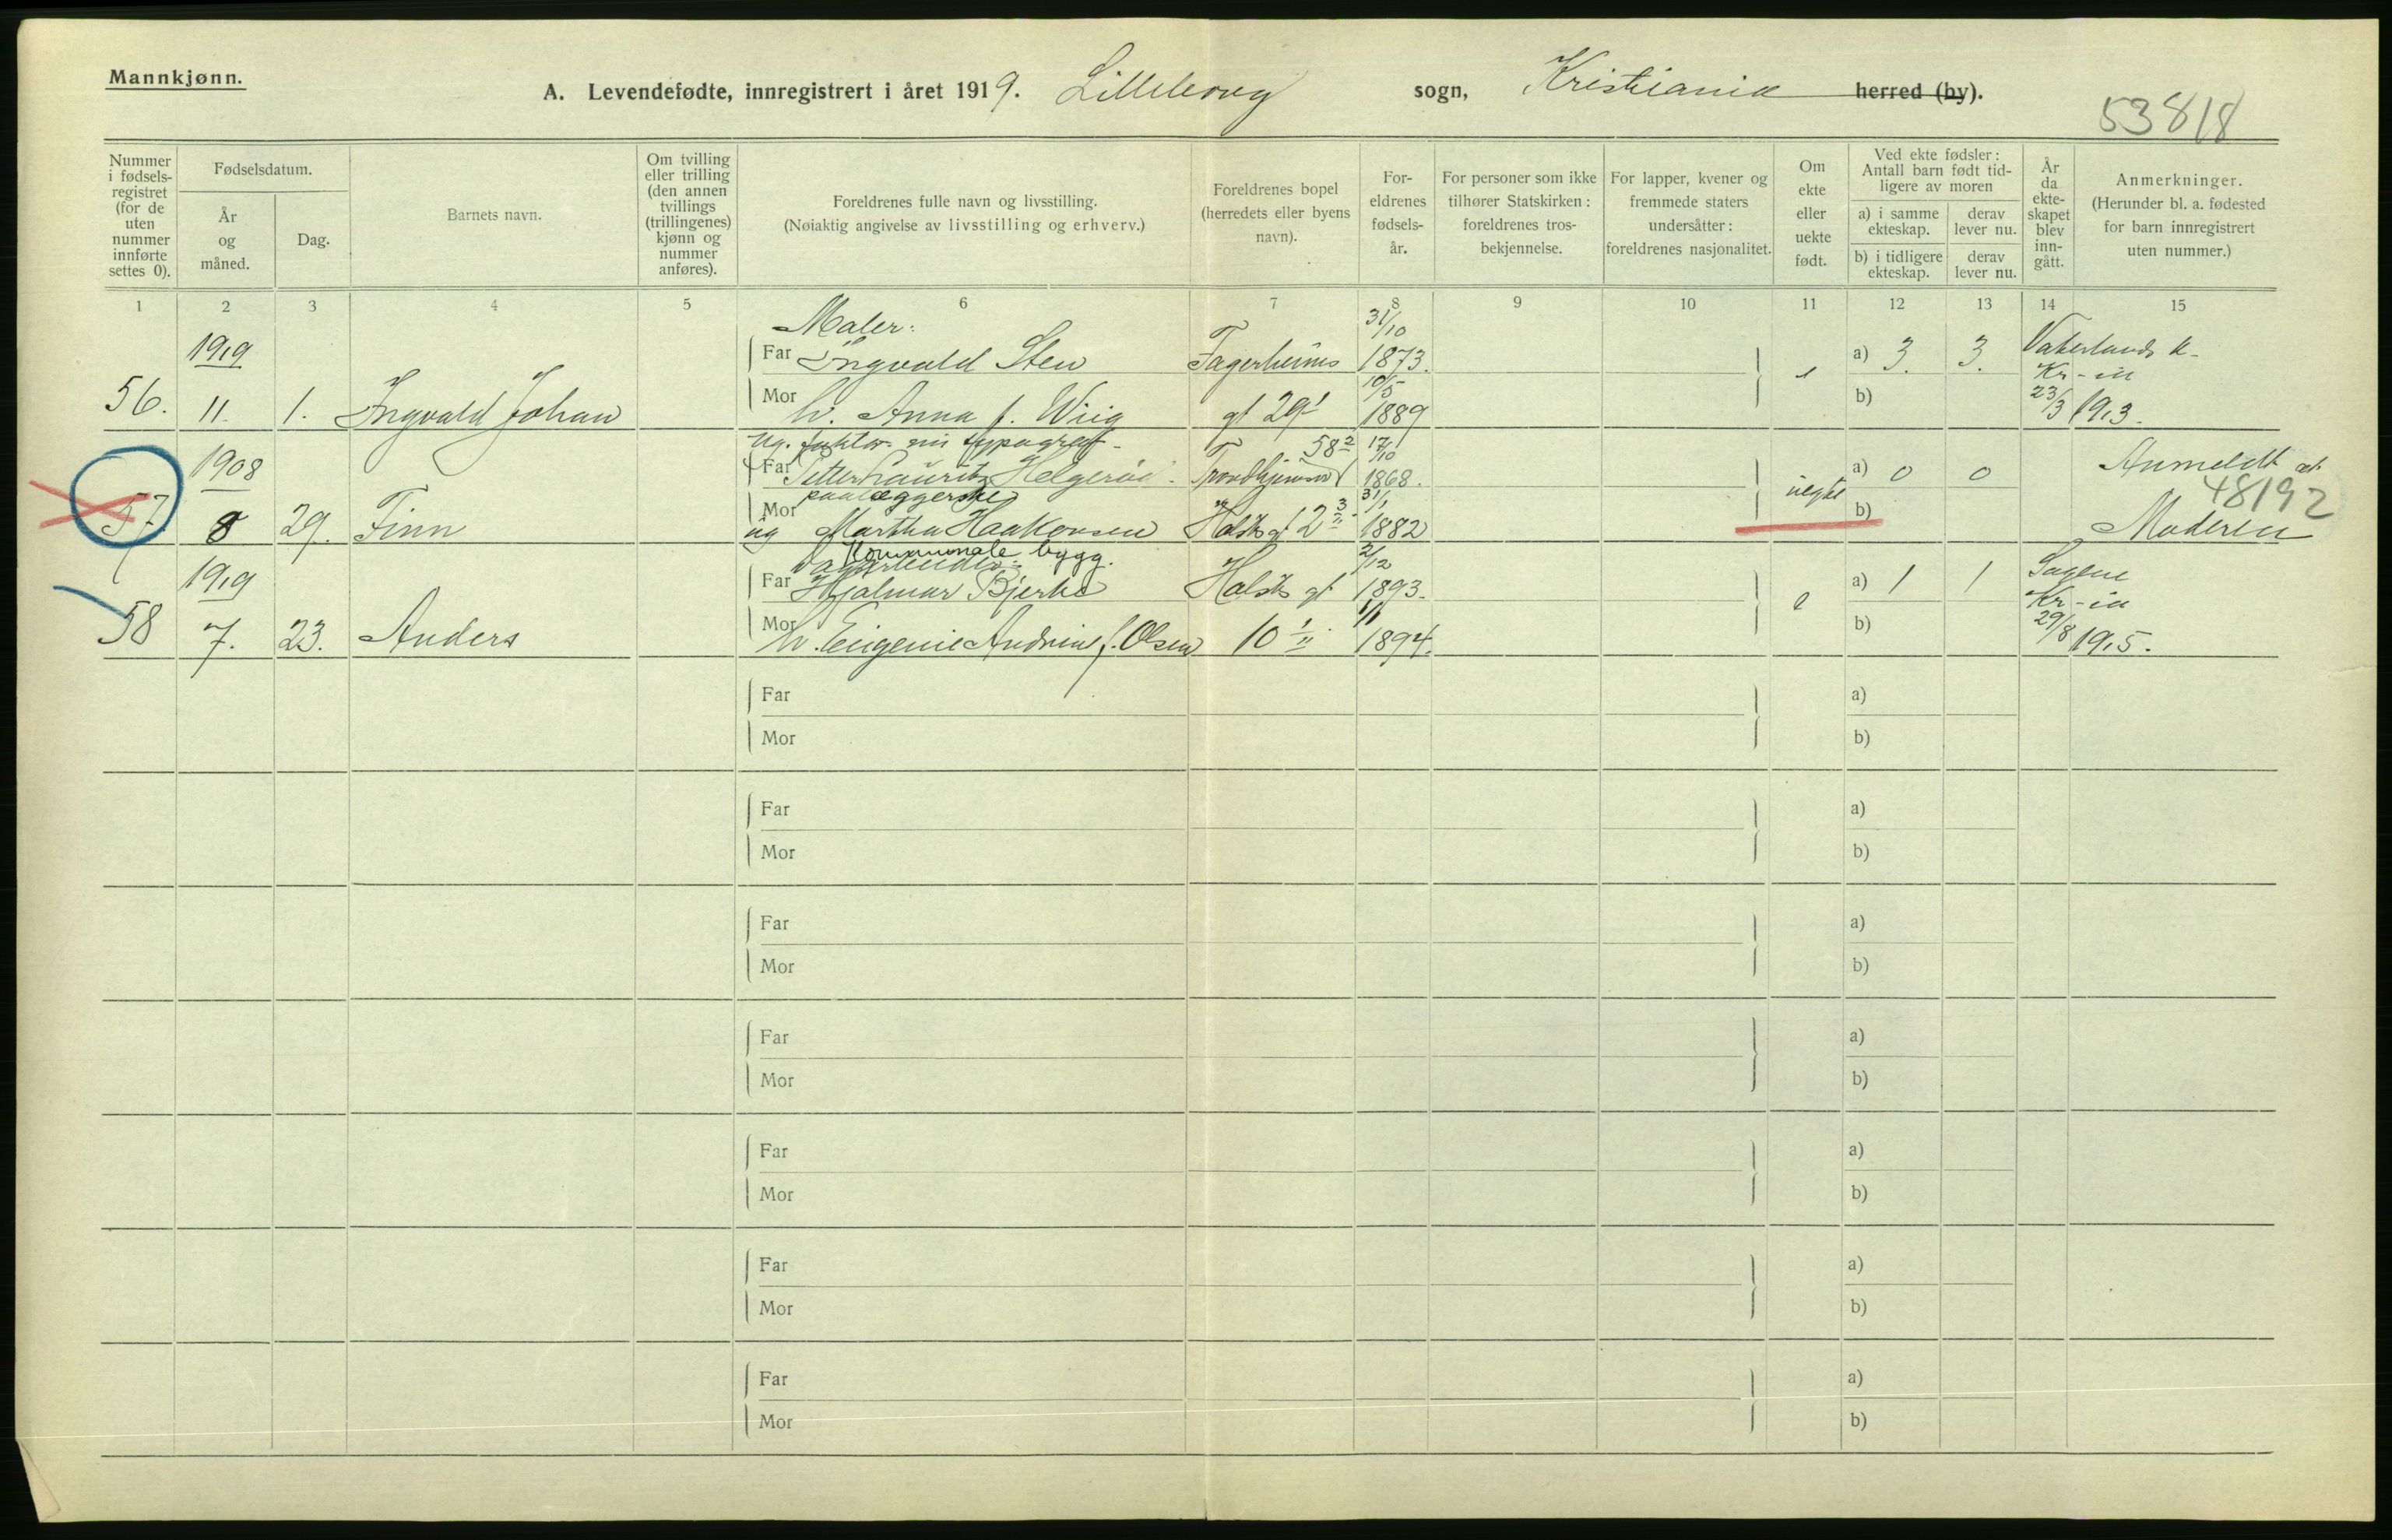 Mannkjønn.
A. Levendefødte, innregistrert i året 1919. Lilleborg sogn, Kristiania herred (by).
53818
Nummer i fødsels-registret (for de uten nummer innførte settes 0).
Fødselsdatum.
År og måned.
Dag.
Barnets navn.
Om tvilling eller trilling (den annen tvillings (trillingenes) kjønn og nummer anføres).
Foreldrenes fulle navn og livsstilling.
(Nøiaktig angivelse av livsstilling og erhverv.)
Foreldrenes bopel (herredets eller byens navn).
For-eldrenes fødsels-år.
For personer som ikke tilhører Statskirken: foreldrenes tros-bekjennelse.
For lapper, kvener og fremmede staters undersåtter: foreldrenes nasjonalitet.
Om ekte eller uekte født.
Ved ekte fødsler: Antall barn født tid-ligere av moren
a) i samme ekteskap.
derav lever nu.
b) i tidligere ekteskap.
derav lever nu.
År da ekte-skapet blev inn-gått.
Anmerkninger.
(Herunder bl. a. fødested for barn innregistrert uten nummer.)
1 2 3 4 5 6 7 8 9 10 11 12 13 14 15
Maler. 31/10
1919 Far Ingvald Sten Fagerheims 1873. a) 3. 3. Vaterlands k.
Kr-ia
56. 11. 1. Ingvald Johan Mor h. Anna f. Wiig gt 29 1 10/5 1889 e b) 23/3 1913.
ug. faktor nu typograf 58 2 17/10
1908 Far Petter Lauritz Helgerud Trondhjemsv 1868. a) 0 0 Anmeldt af
paalæggerske 31/1 uegte 48192
57. 8 29. Finn Mor ug Martha Haakonsen Halsts gt 2 3 1882 b) Moderen
Kommunale bygg.
2/12
1919 Far Hjalmar Bjerke Halsts gt 1893. a) 1 1 Sagene
Kr-ia
58 7. 23. Anders Mor h. Eugenie Andrine f. Olsen 10 1 1/1 1894. e b) 29/8 1915.
Far a)
Mor b)
Far a)
Mor b)
Far a)
Mor b)
Far a)
Mor b)
Far a)
Mor b)
Far a)
Mor b)
Far a)
Mor b)